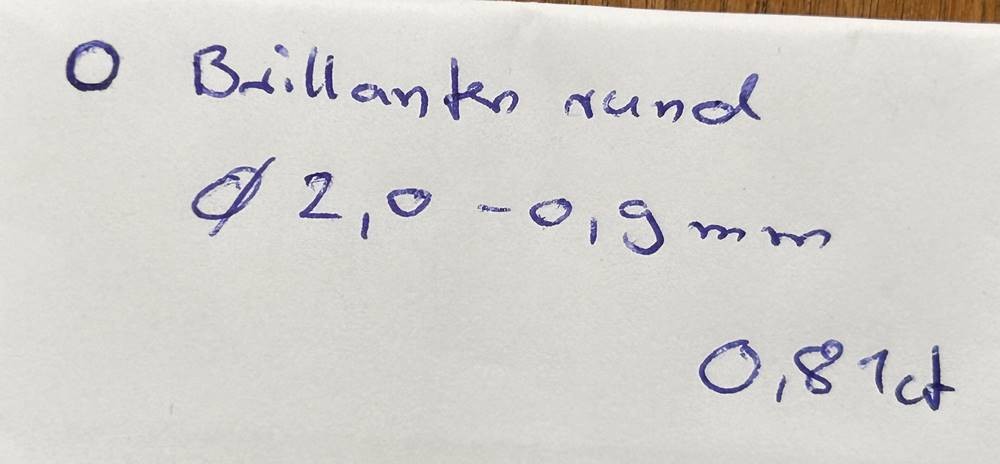 O Brillanten rund
Ø 2,0 - 0,9 mm
0,81ct